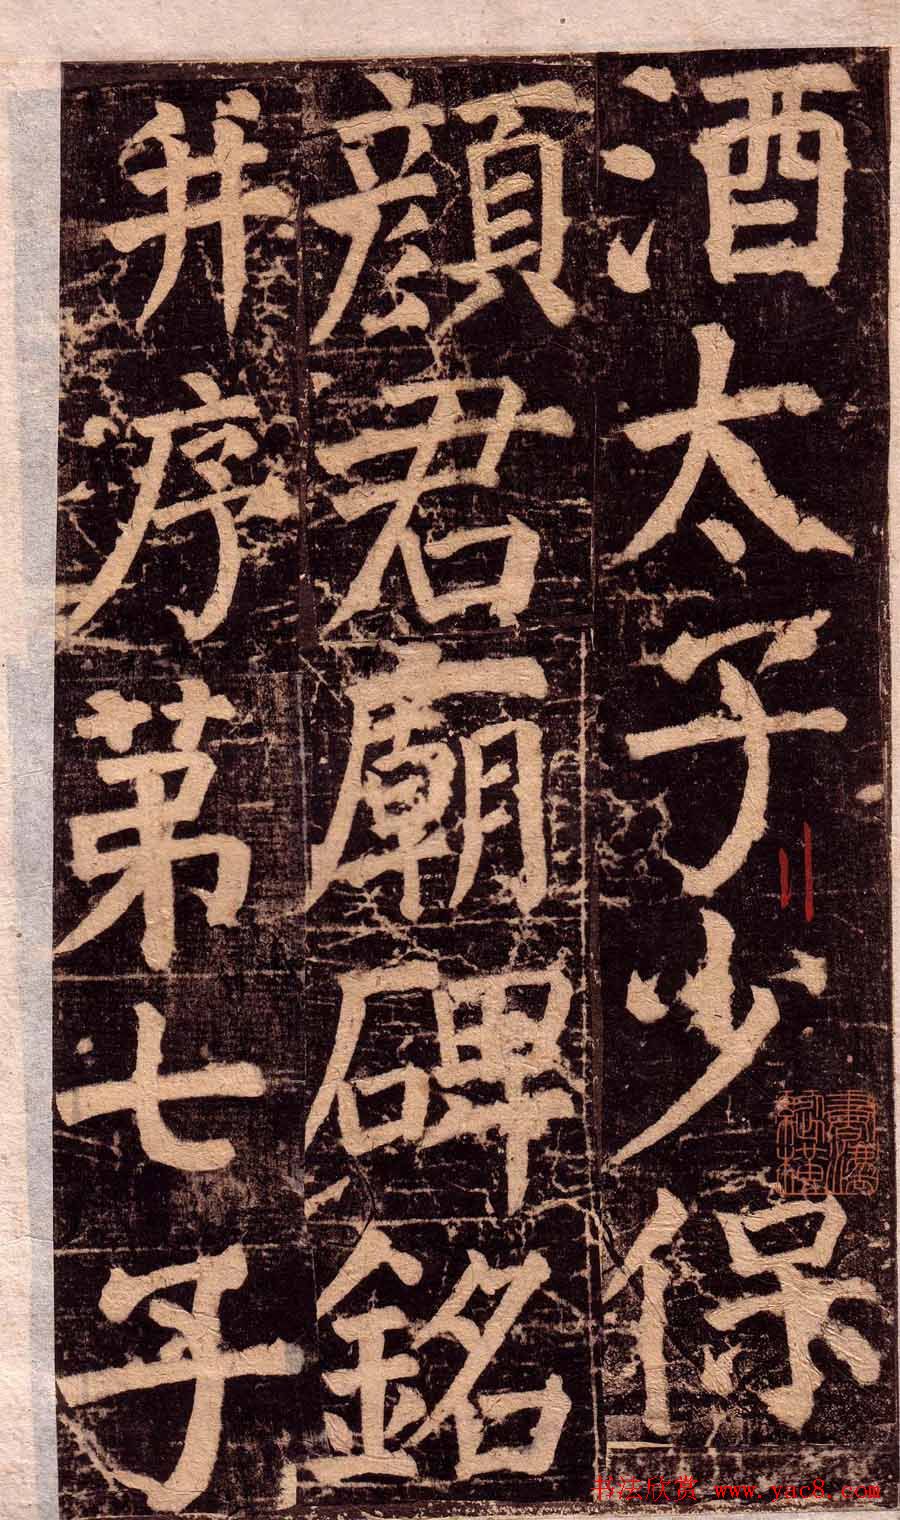 酒太子少保
顏君廟碑銘
并序第七子
书法欣赏 www.yac8.com